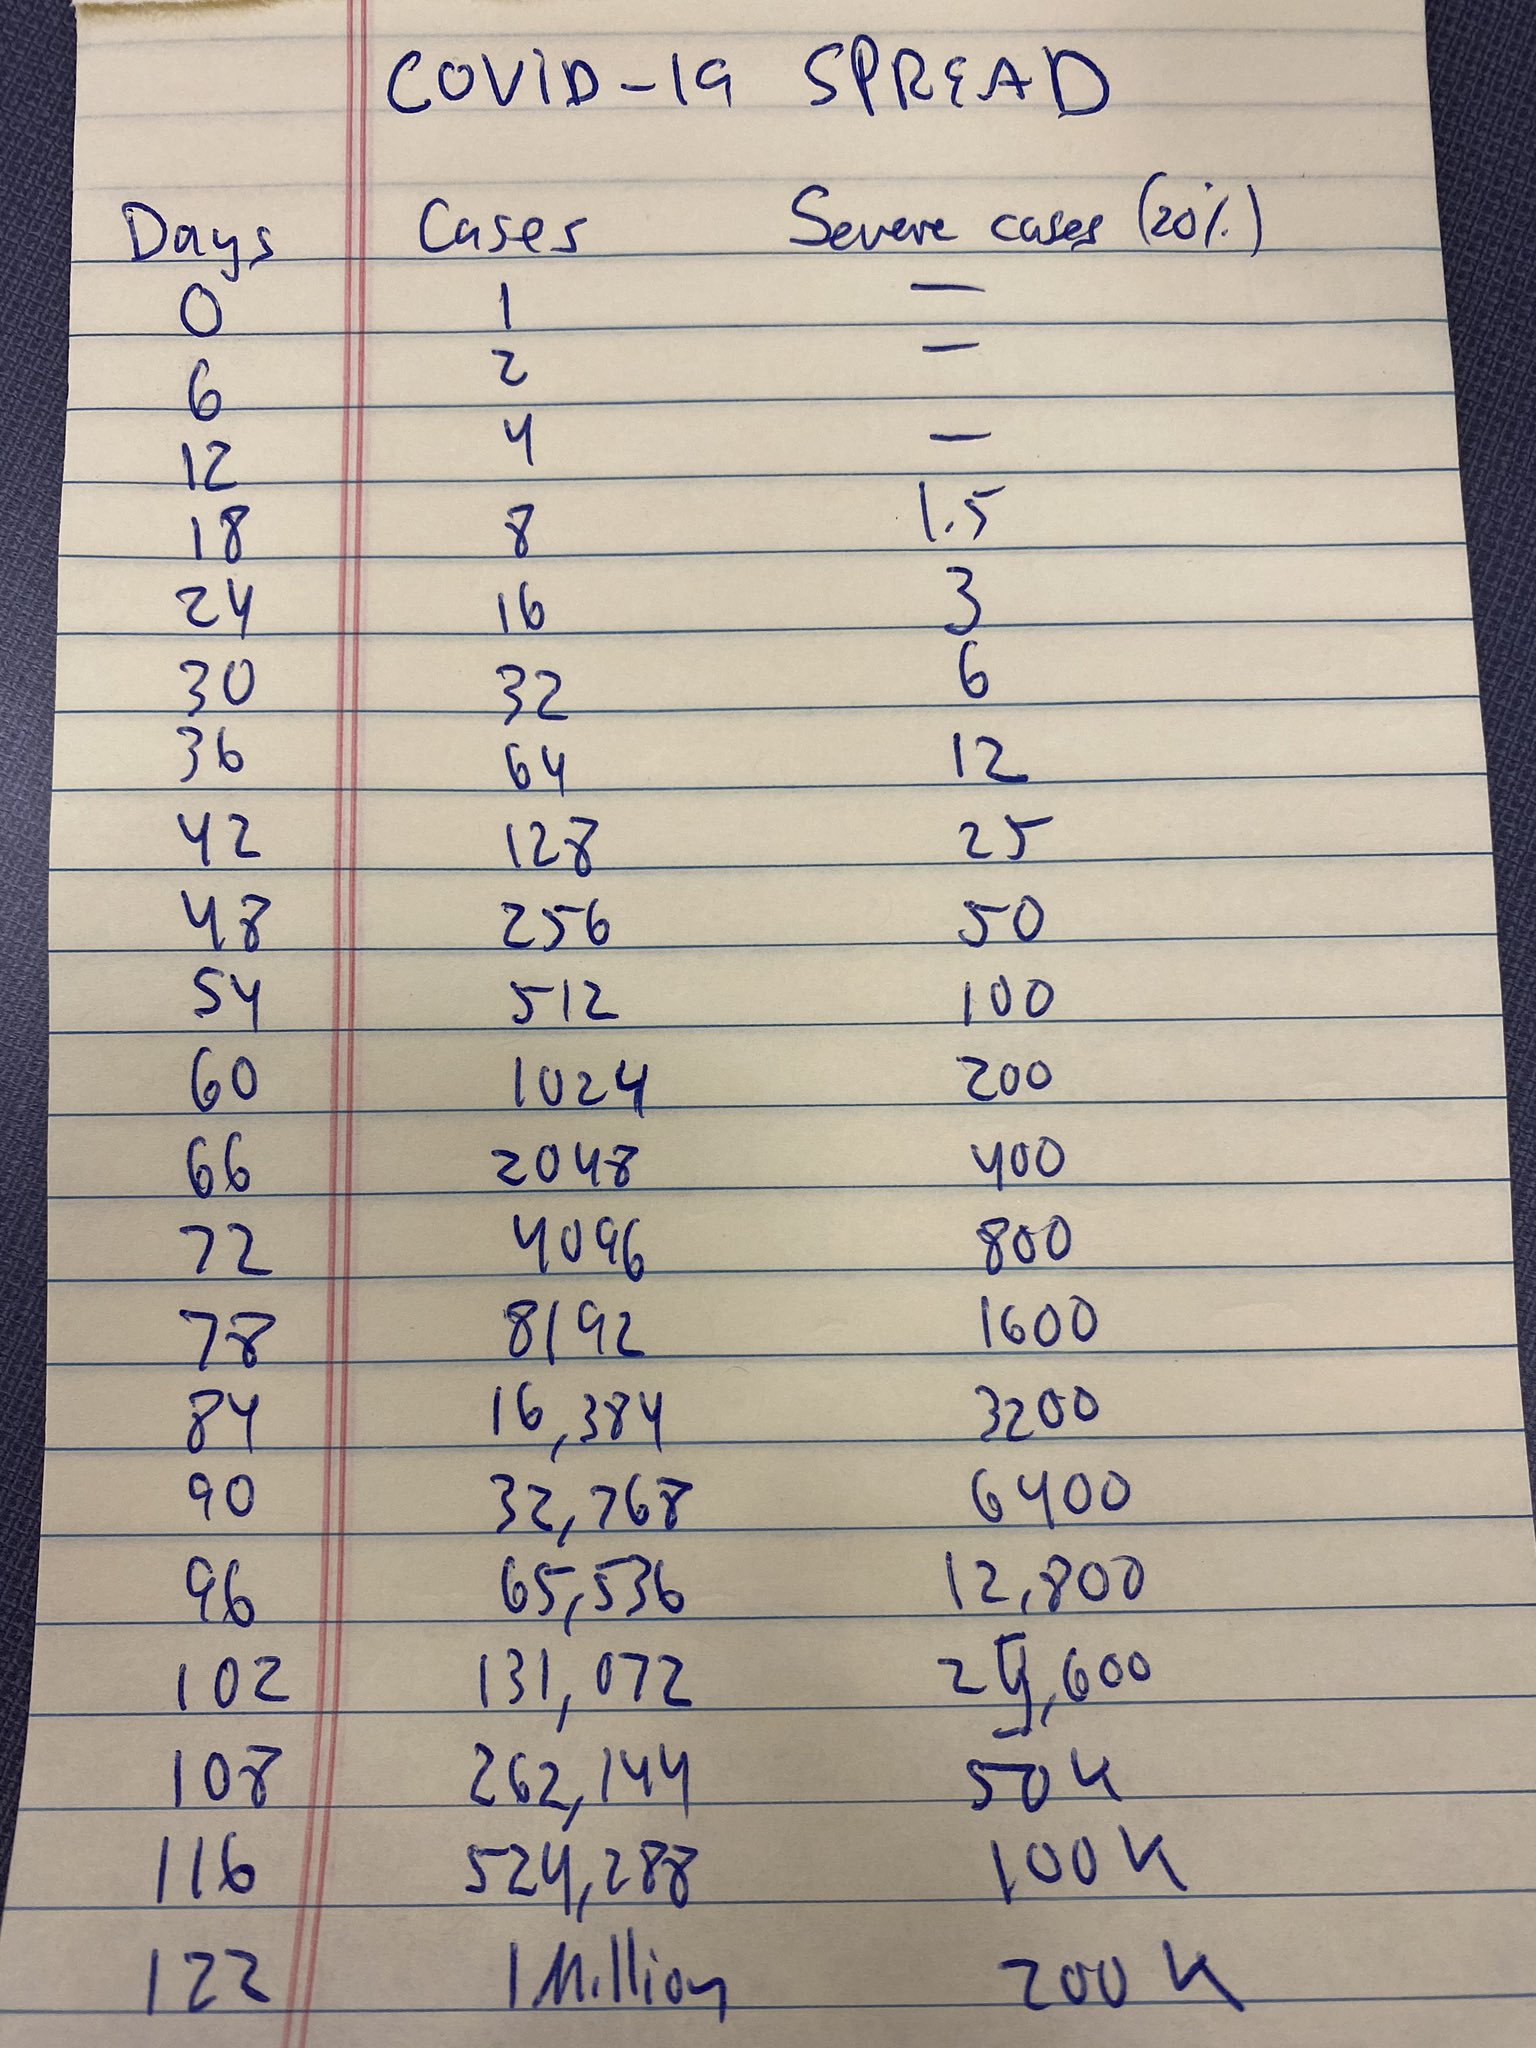 COVID-19 SPREAD
Days Cases Severe cases (20%)
0 1 —
6 2 —
12 4 —
18 8 1.5
24 16 3
30 32 6
36 64 12
42 128 25
48 256 50
54 512 100
60 1024 200
66 2048 400
72 4096 800
78 8192 1600
84 16,384 3200
90 32,768 6400
96 65,536 12,800
102 131,072 25,600
108 262,144 50K
116 524,288 100K
122 1 Million 200K